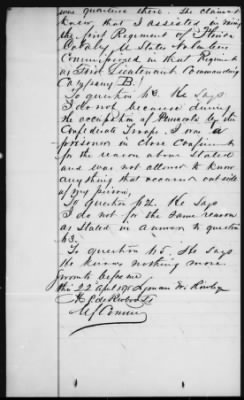 was quartered there. The claimant
knew that I assisted in raising
the first Regiment of Florida
Cavalry U States Volunteers
Commissioned in that Regiment
as First Lieutenant Commanding
Company B.
To question 43. He says
I do not because during
the occupation of Pensacola by the
Confederate Troops I was a
prisoner in close confinement
for the reason above stated
and was not allowed to know
anything that occurred outside
of my prison,
To question 62. He says
I do not for the same reason
as stated in answer to question
43.
To question 65. He says
He knows nothing more
Sworn to before me
this 22 Apl 1875 Lyman W. Rowley